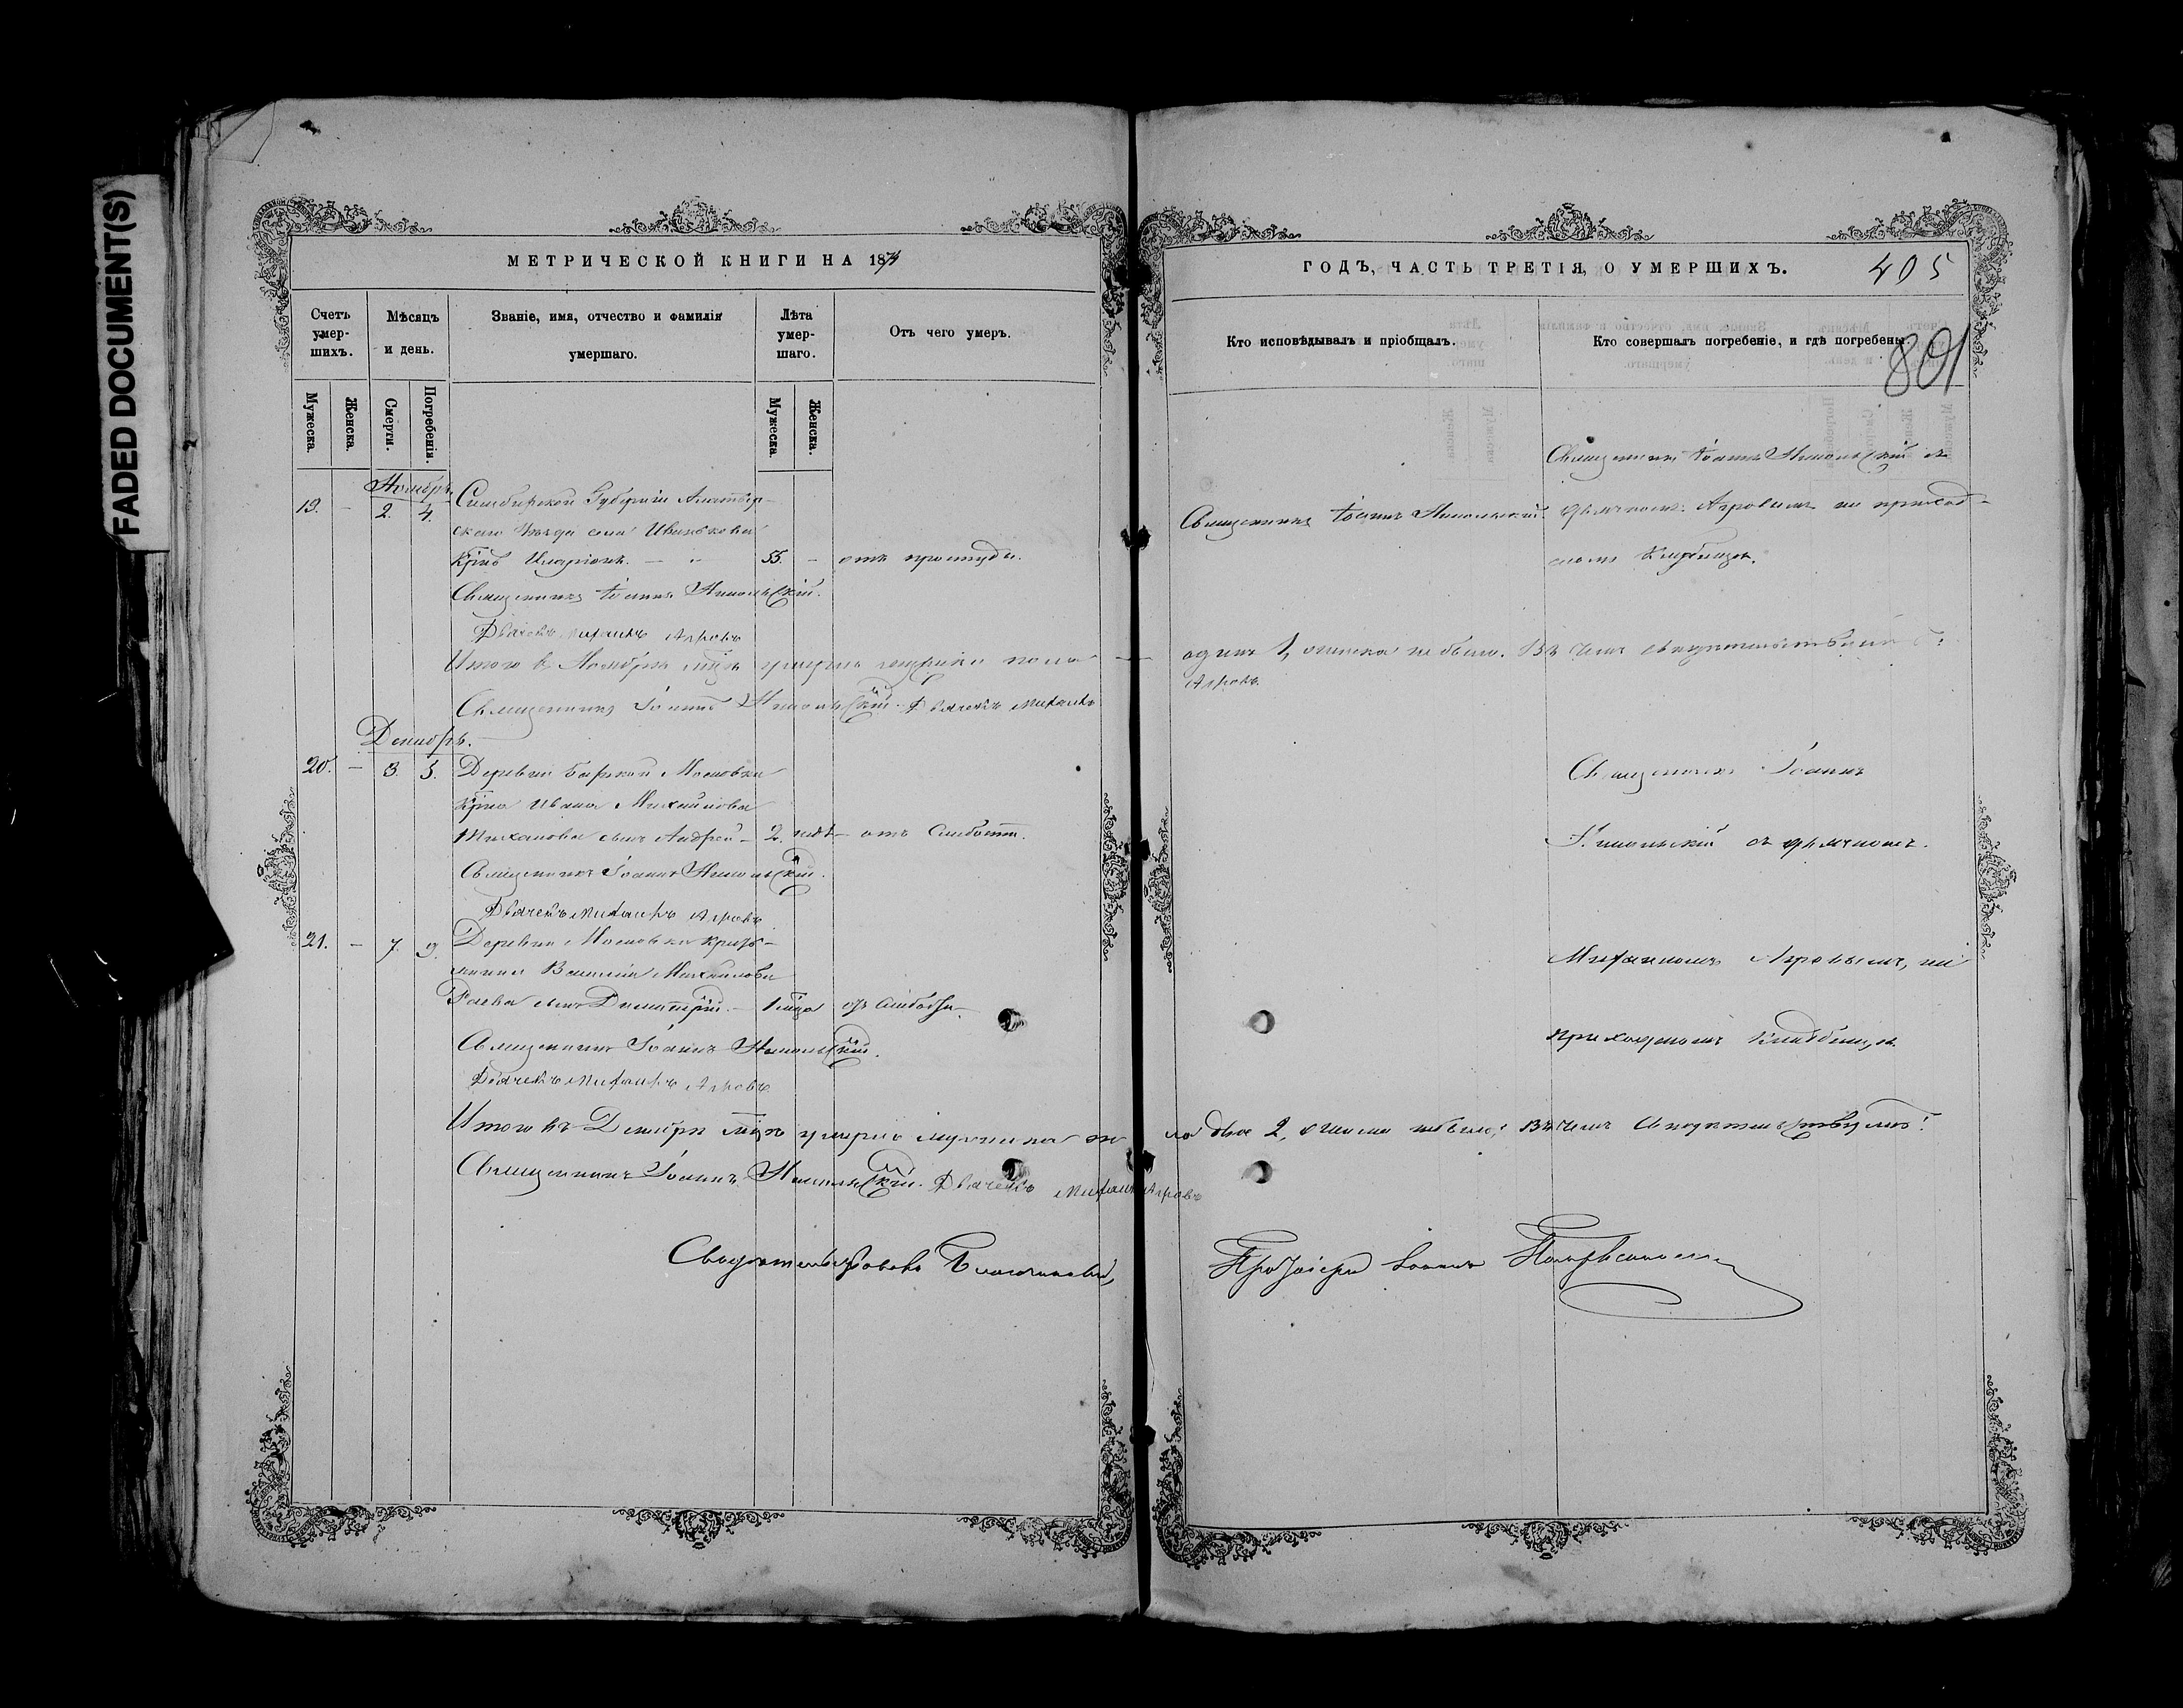 FADED DOCUMENT(S)
МЕТРИЧЕСКОЙ КНИГИ НА 1874
Счетъ умер-шихъ.
Мѣсяцъ и день.
Званіе, имя, отчество и фамилія умершаго.
Лѣта умер-шаго.
Отъ чего умеръ.
Мужеска.
Женска.
Смерти.
Погребенія.
Мужеска.
Женска.
Ноябрь
19. - 2. 4. Симбирской Губерніи Алатыр-
скаго Уѣзда села Иваньково
Кр̃нъ Иларіонъ. - 55. - отъ простуды.
Священникъ Іоаннъ Никольскій.
Дьячекъ Михаилъ Агровъ
Итого въ Ноябрѣ мц̃ѣ умерло мужеска пола
Священникъ Іоаннъ Никольскій. Дьячекъ Михаилъ
Декабрь.
20. - 3. 5. Деревни
кр̃на Ивана Михайлова
сынъ Андрей - 2. нед. - отъ слабости.
Священникъ Іоаннъ Никольскій.
Дьячекъ Михаилъ Агровъ
21. - 7. 9. Деревни кресть-
янина Василія Михайлова
сынъ Димитрій. - 1 мц̃а отъ слабости.
Священникъ Іоаннъ Никольскій.
Дьячекъ Михаилъ Агровъ
Итого въ Декабрѣ мц̃ѣ умерло мужеска по
Священникъ Іоаннъ Никольскій. Дьячекъ Михаилъ Агровъ
Свидѣтельствовалъ Благочинный,
ГОДЪ, ЧАСТЬ ТРЕТІЯ, О УМЕРШИХЪ.
405
801
Кто исповѣдывалъ и пріобщалъ.
Кто совершалъ погребеніе, и гдѣ погребены.
Священникъ Іоаннъ Никольскій съ
Священникъ Іоаннъ Никольскій. дьячкомъ Агровымъ на приход-
скомъ кладбищѣ.
одинъ 1, женска не было. Въ чемъ свидѣтельствуемъ:
Агровъ.
Священникъ Іоаннъ
Никольскій съ дьячкомъ
Михаиломъ Агровымъ, на
приходскомъ кладбищѣ.
ла два 2, женска не было; въ чемъ свидѣтельствуемъ:
Протоіерей Іоаннъ